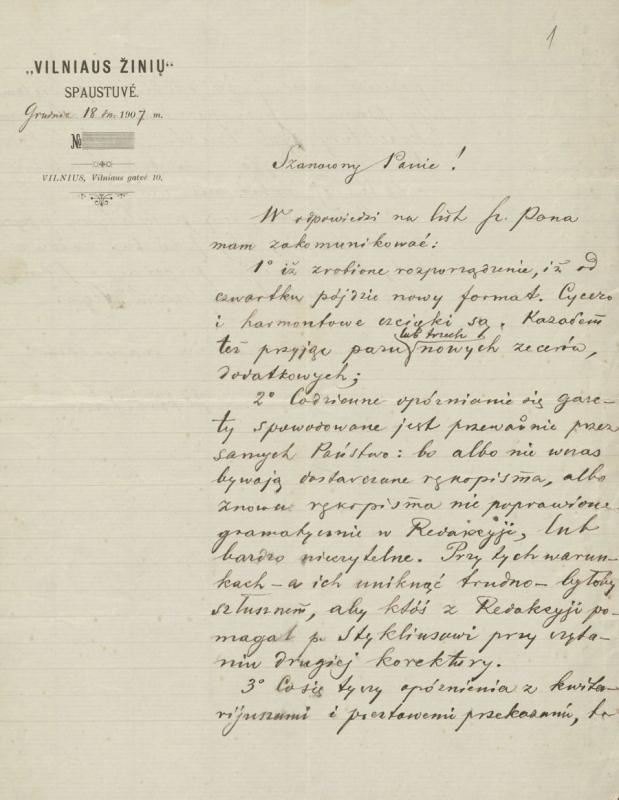 1
„VILNIAUS ŽINIŲ“
SPAUSTUVĖ.
Grudnia 18 dn. 1907 m.
№
VILNIUS, Vilniaus gatvė 10.
Szanowny Panie!
W odpowiedzi na list Sz. Pana
mam zakomunikować:
1° iż zrobione rozporządzenie, iż od
czwartku pójdzie nowy format. Cycero
i harmontowe czcionki są. Kazałem
też przyjąć paru (lub trzech) nowych zecerów,
dodatkowych;
2° Codzienne opóźnianie się gaze-
ty spowodowane jest przeważnie przez
samych Państwo: bo albo nie wczas
bywają dostarczane rękopisma, albo
znowu rękopisma nie poprawione
gramatycznie w Redakcyji, lub
bardzo nieczytelne. Przy tych warun-
kach – a ich uniknąć trudno – byłoby
słusznem, aby któś z Redakcyji po-
magał p. Stykliusowi przy czyta-
niu drugiej korektury.
3° Co się tyczy opóźnienia z kwita-
rijuszami i pocztowemi przekazami, to